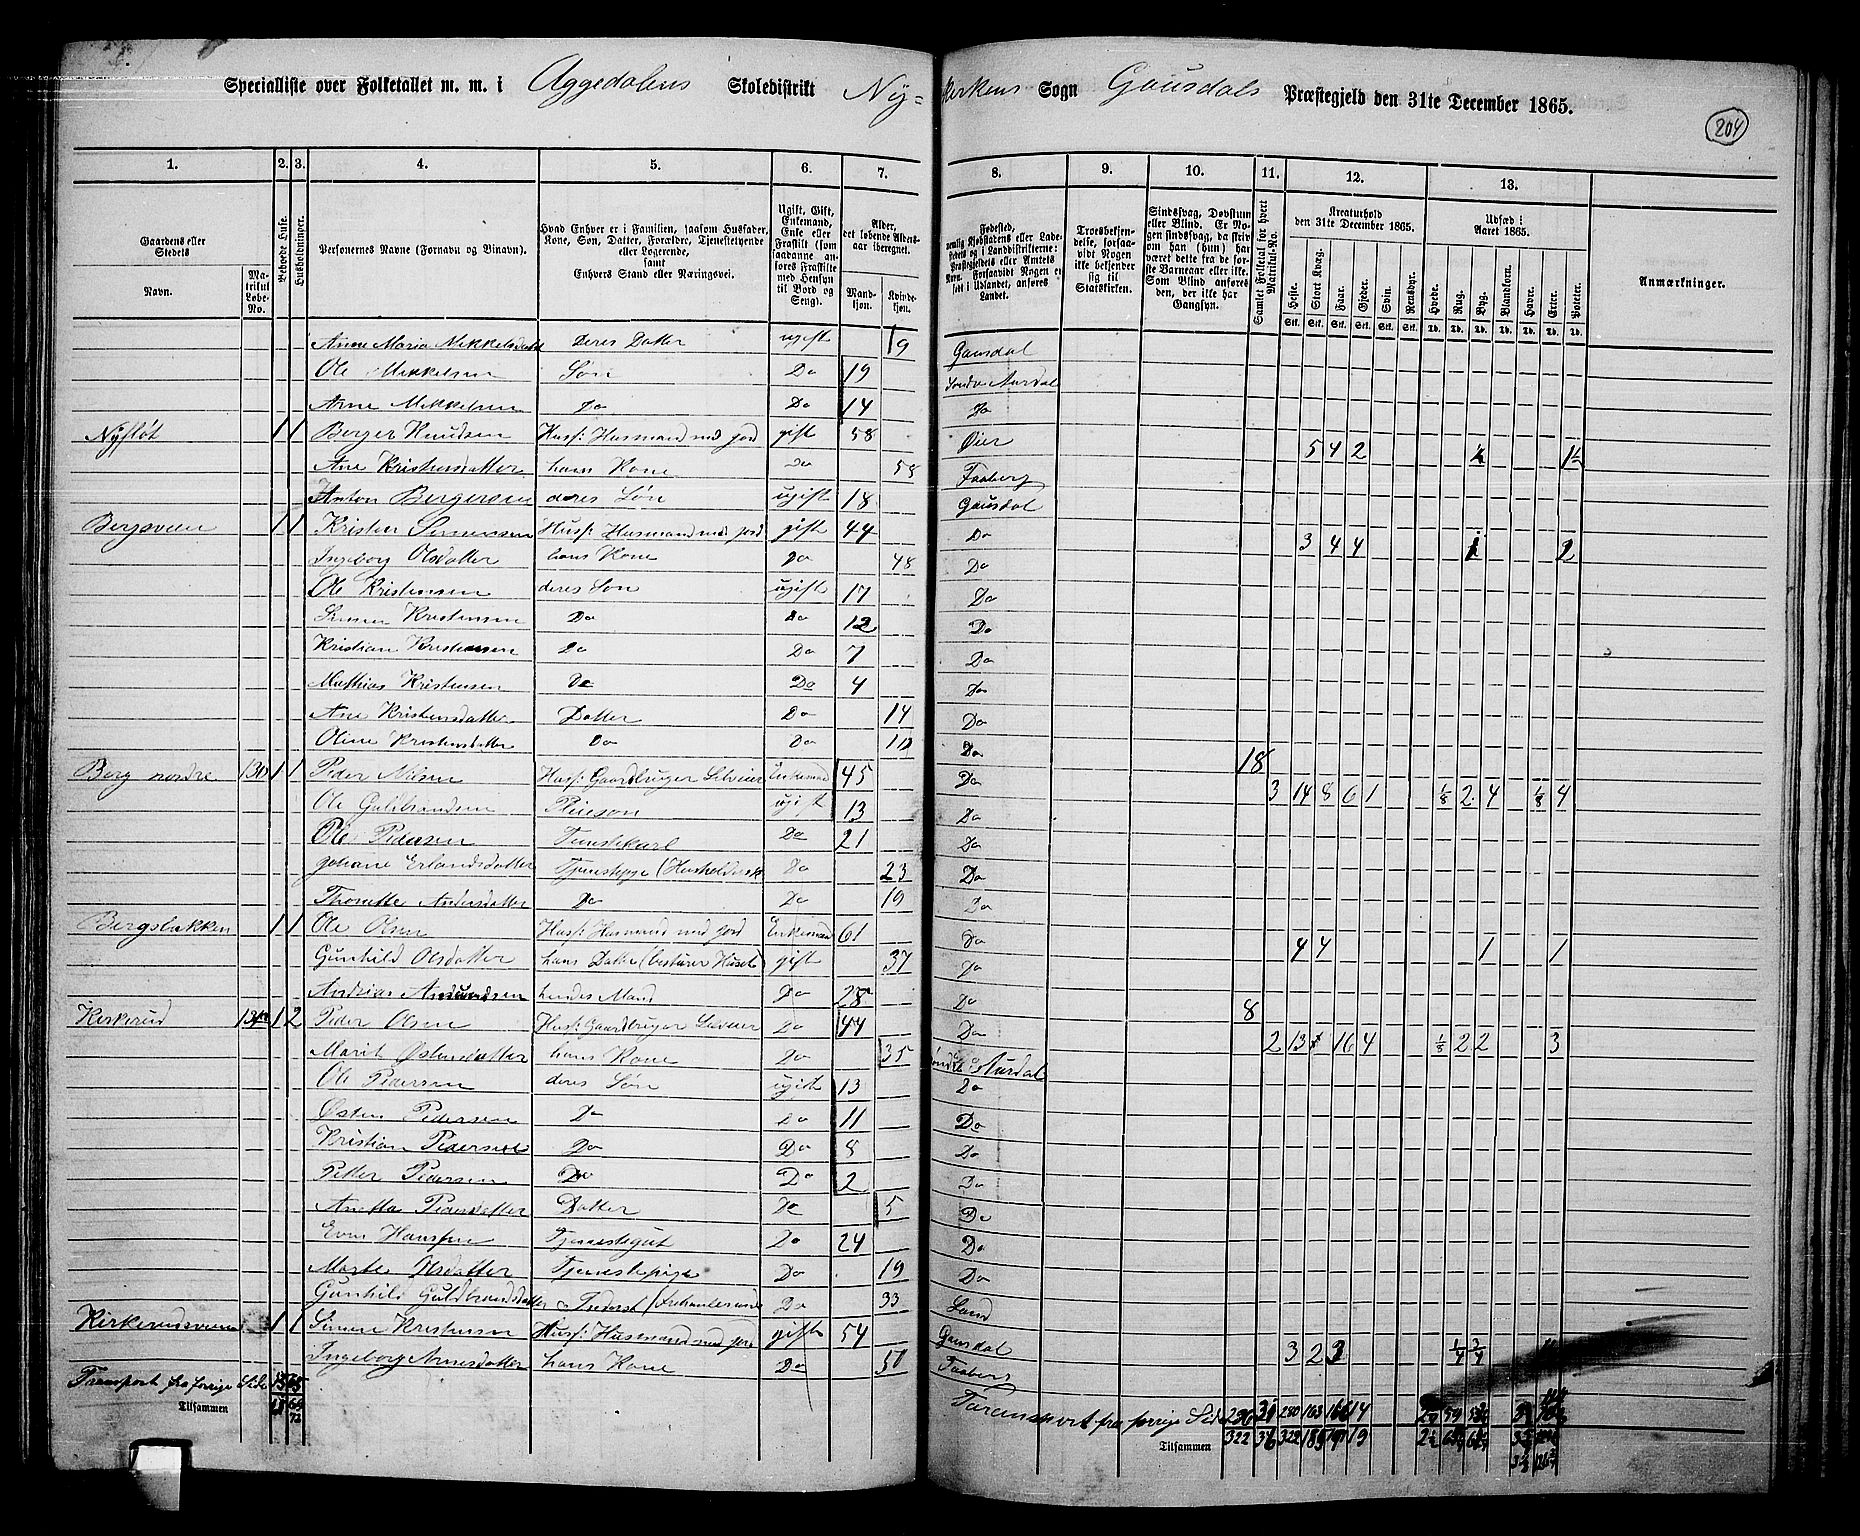 Specialliste over Folketallet m. m. i Aggedalens Skoledistrikt Ny= kirkens Sogn Gausdals Præstegjeld den 31te December 1865.
204
1. 2. 3. 4. 5. 6. 7. 8. 9. 10. 11. 12. 13.
Gaardens eller Stedets Navn. Matrikul Løbe-No.
Beboede Huse.
Husholdninger.
Personernes Navne (Fornavn og Binavn).
Hvad Enhver er i Familien, saasom Husfader, Kone, Søn, Datter, Forældre, Tjenestetyende eller Logerende, samt Enhvers Stand eller Næringsvei.
Ugift, Gift, Enkemand, Enke eller Fraskilt (som saadanne anføres Fraskilte med Hensyn til Bord og Seng).
Alder, det løbende Aldersaar iberegnet. Mandkjøn. Kvindekjøn.
Troesbekjendelse, forsaavidt Nogen ikke bekjender sig til Statskirken.
Samlet Folketal for hvert Matrikul-No.
Kreaturhold den 31te December 1865.
Heste. Stort Kvæg. Faar. Gjeder. Svin. Rensdyr.
Udsæd i Aaret 1865.
Hvede. Rug. Byg. Blandkorn. Havre. Erter. Poteter.
Anmærkninger.
Anne Maria Mikkelsdatt Deres Datter ugift 19 Gausdal
Ole Mikkelsen Søn Do 19 Søndre Aurdal
Arne Mikkelsen Do Do 14 Do
Nyfløt 1 1 Berger Knudsen Husf: Husmand med jord gift 58 Øier 5 4 2
Ane Kristensdatter hans Kone Do 58 Faaberg
Anton Bergersen deres Søn ugift 18 Gausdal
Bergsveen 1 1 Kristen Simensen Husf: Husmand med jord gift 44 Do 3 4 4 2
Ingeborg Olsdatter hans Kone Do 48 Do
Ole Kristensen deres Søn ugift 17 Do
Simen Kristensen Do Do 12 Do
Kristian Kristensen Do Do 7 Do
Mathias Kristensen Do Do 4 Do
Ane Kristensdatter Datter Do 14 Do
Oline Kristensdatter Do Do Do 18
Berg nordre 130 1 1 Peder Nilsen Husf: Gaardbruger Selveier Enkemand 45 Do 3 14 8 6 1 1/8 2 4 1/8 4
Ole Guldbrandsen Pleiesøn ugift 13 Do
Ole Pedersen Tjenstekarl Do 21 Do
Johane Erlandsdatter Tjenstepige (Husholderske Do 23 Do
Thorette Andersdatter Do Do 19 Do
Bergsbakken 1 1 Ole Olsen Husf: Husmand med jord Enkemand 61 Do 4 4 1 1
Gunhild Olsdatter hans Datter (besturer Huset) gift 37 Do
Andreas Amundsen hendes Mand Do 28 Do 8
Kirkerud 1 2 Peder Olsen Husf: Gaardbruger Selveier Do 44 Do 2 13 16 4 1/8 2 2 3
Marit Østensdatter hans Kone Do 35 Søndre Aurdal
Ole Pedersen deres Søn ugift 13 Do
Østen Pedersen Do Do 11 Do
Kristian Pedersen Do Do 8 Do
Petter Pedersen Do Do 2 Do
Anetta Pedersdatter Datter Do 5 Do
Even Hansen Tjenestegut Do 24 Do
Marte Olsdatter Tjenestepige Do 19 Do
Gunhild Guldbrandsdatter Do 33 Land
Kirkerudsveen 1 1 Simen Kristensen Husf: Husmand med jord gift 54 Gausdal 3 2 3 1/4 3/4
Ingeborg Arnesdatter hans Kone Do Faaberg
Transport fra forrige Side
Transport fra forrige Side
Tilsammen
Tilsammen 322 36 322